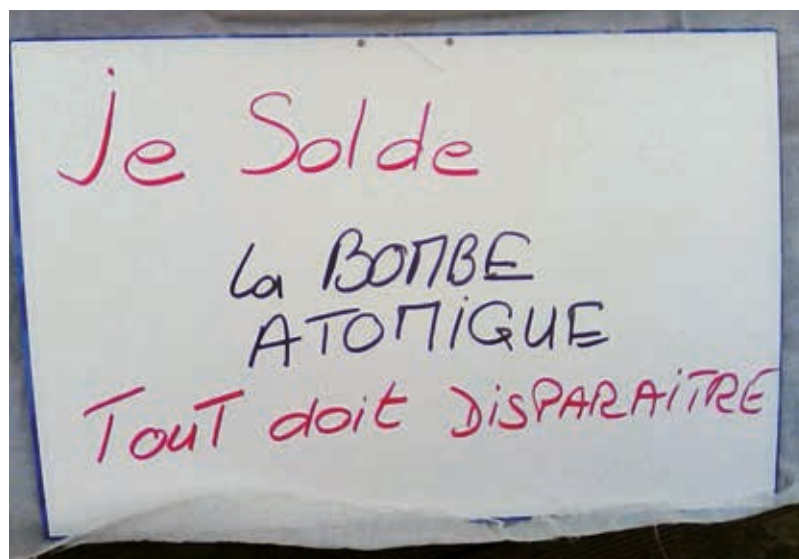 je Solde
la BOMBE
ATOMiQUE
TouT doit DiSPARAiTRE